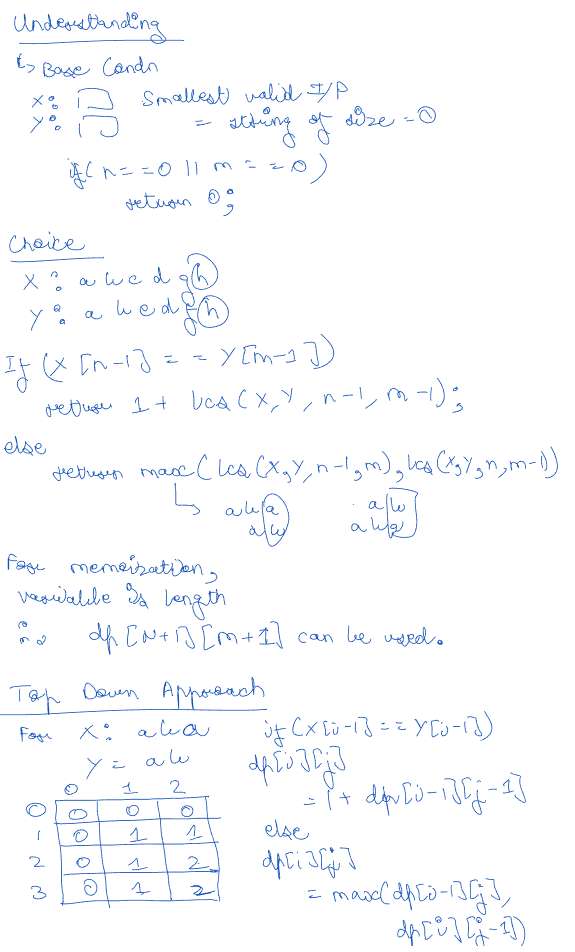 Understanding
↳ Base Condn
X: [] Smallest valid I/P
Y: [] = string of size = 0
if(n==0 || m==0)
return 0;
Choice
X: a b c d g h
Y: a b e d f h
If (X[n-1] == Y[m-1])
return 1 + lcs(X, Y, n-1, m-1);
else
return max(lcs(X,Y,n-1,m), lcs(X,Y,n,m-1))
↳ ab|a a|b
a|b ab|a
For memoization,
variable is length
∴ dp[N+1][m+1] can be used.
Top Down Approach
For X: aba if(X[i-1]==Y[j-1])
Y = ab dp[i][j]
0 1 2 = 1 + dp[i-1][j-1]
0 0 0 0
1 0 1 1 else
2 0 1 2 dp[i][j]
3 0 1 2 = max(dp[i-1][j],
dp[i][j-1])